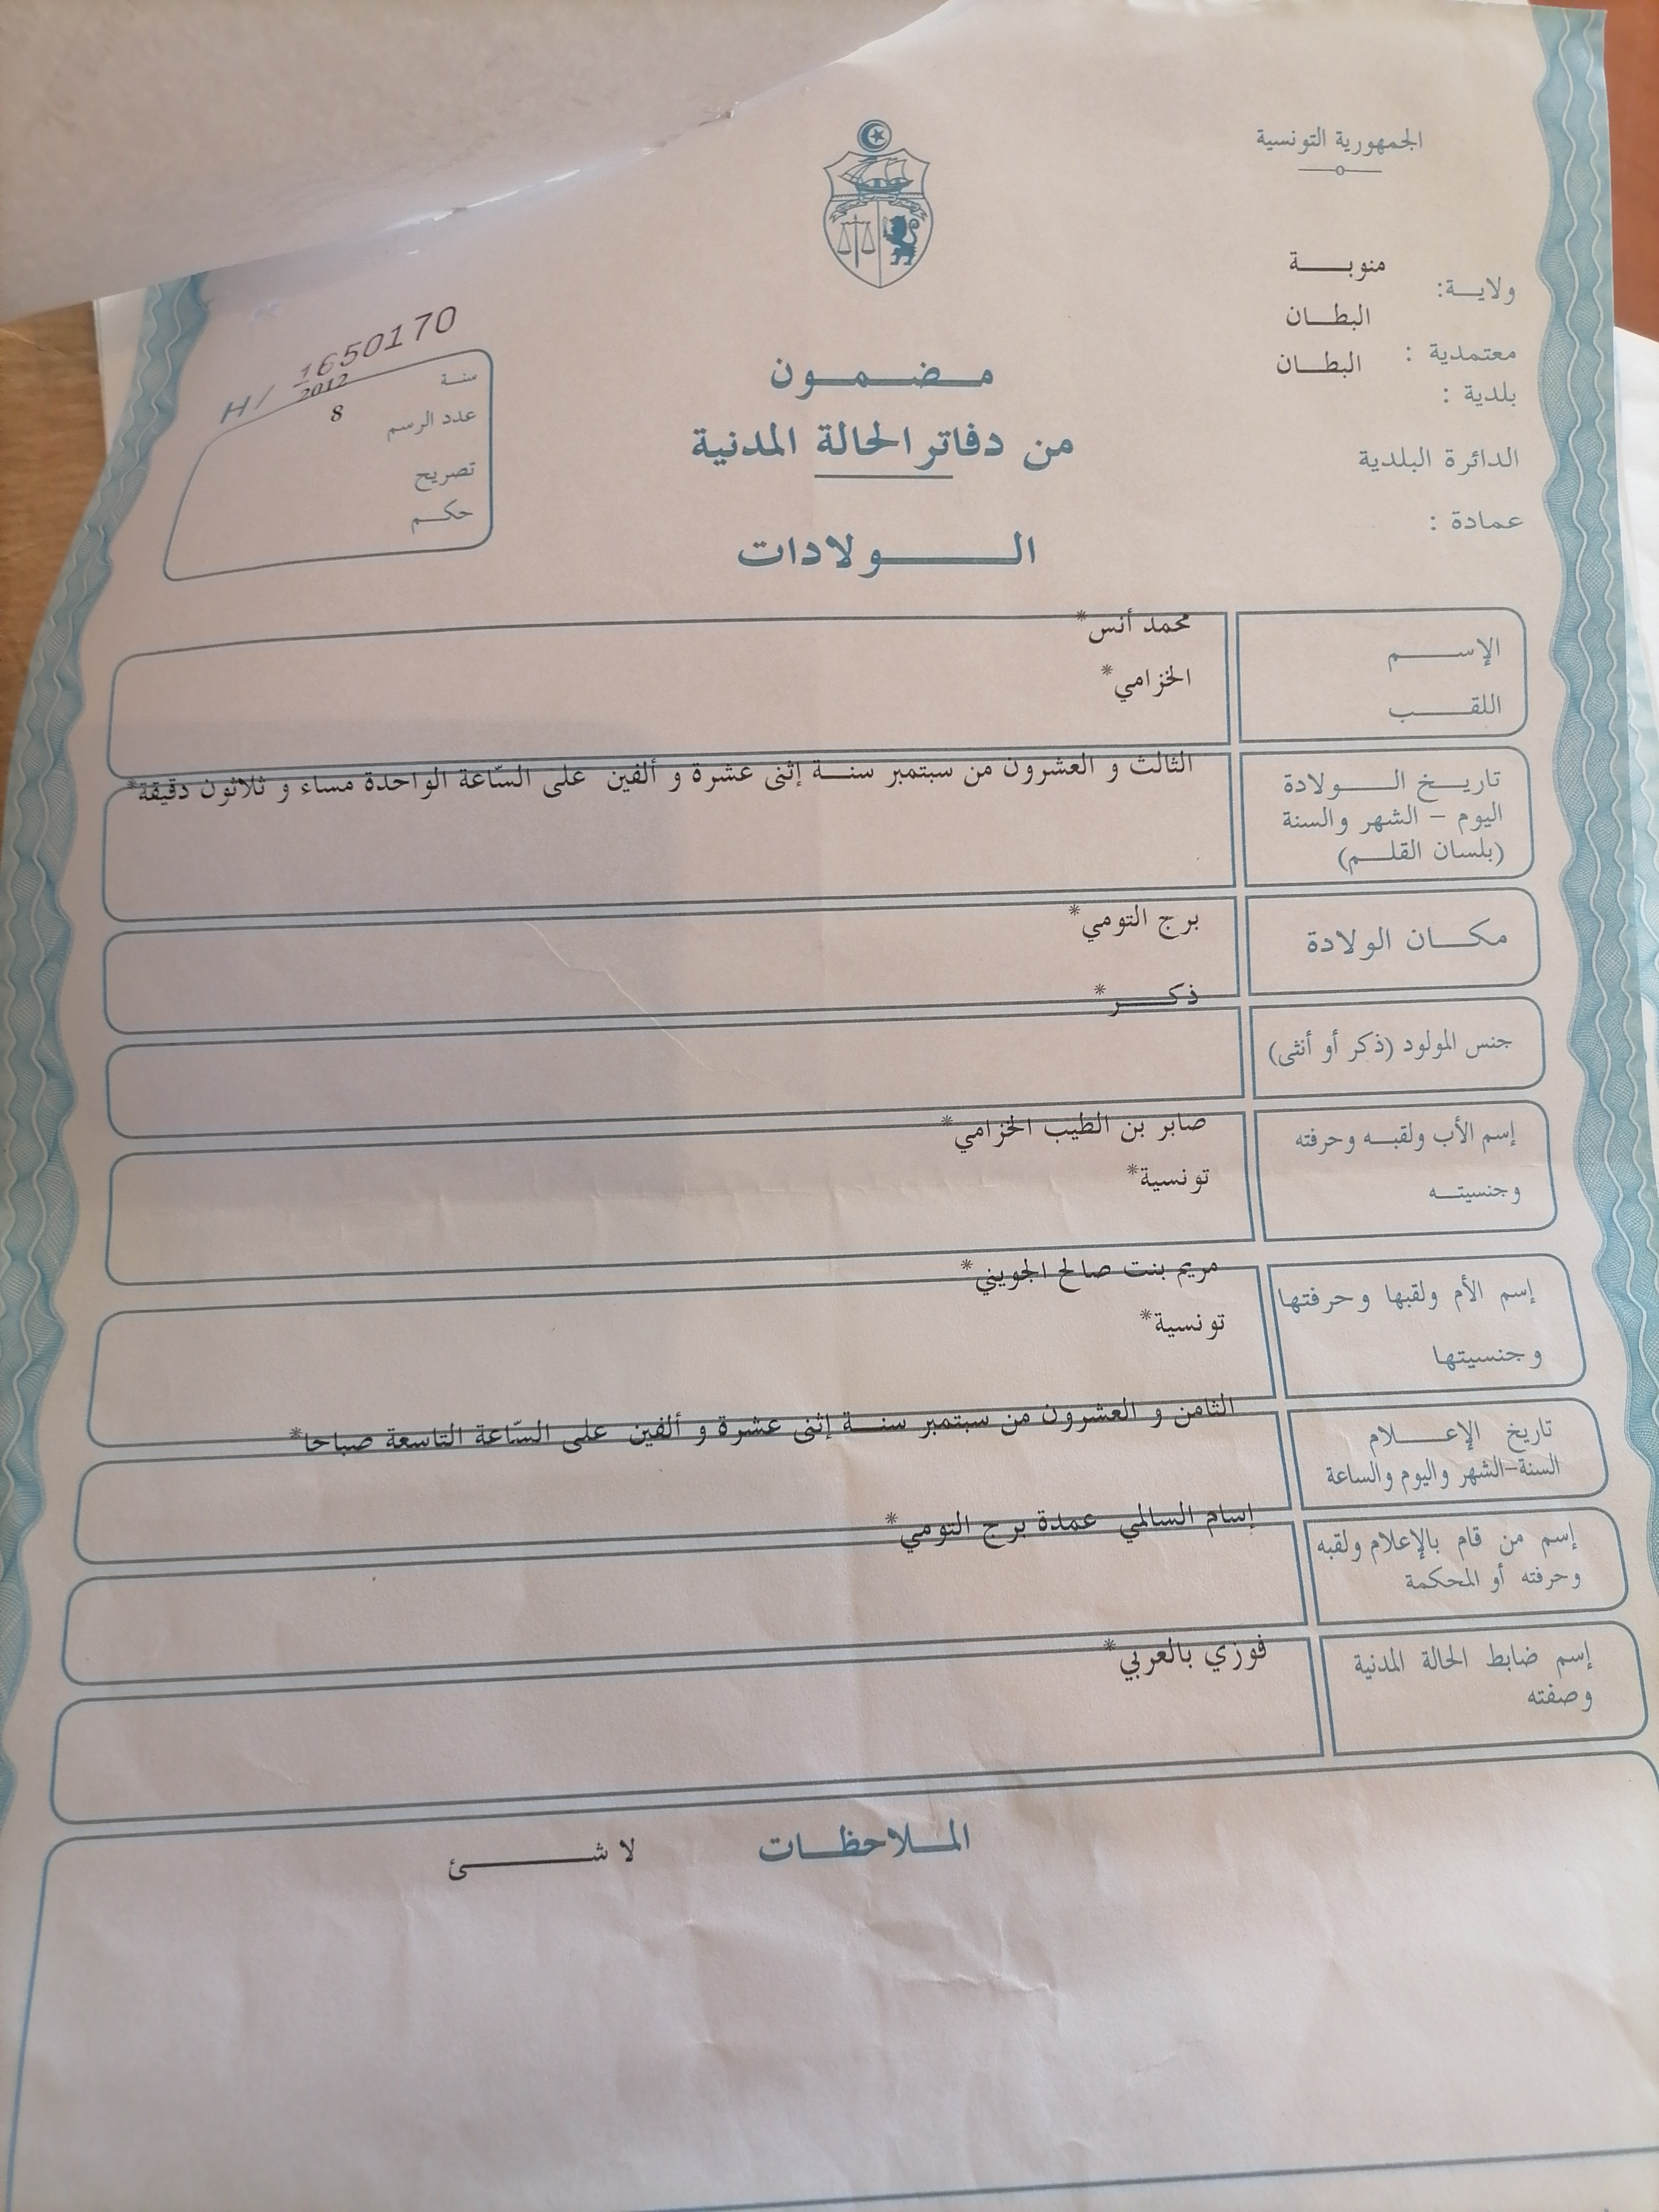 الجمهورية التونسية
ولايـــة: منوبـــــة
معتمدية : البطـــان
بلدية : البطـــان
الدائرة البلدية
عمادة :
مـضـمـــون
من دفاتر الحالة المدنية
الـــــــولادات
H/ 1650170
سنة 2012
عدد الرسم 8
تصريح
حكـــم
الإســـــم محمد أنس*
اللقـــــب الخزامي*
تاريـــخ الـــــولادة
اليوم – الشهر والسنة
(بلسان القلـــم)
الثالث و العشرون من سبتمبر سنـــة إثنى عشرة و ألفين على السّاعة الواحدة مساء و ثلاثون دقيقة*
مكـــان الولادة برج التومي*
جنس المولود (ذكر أو أنثى) ذكـــــر*
إسم الأب ولقبـــه وحرفته صابر بن الطيب الخزامي*
وجنسيتـــه تونسية*
إسم الأم ولقبها وحرفتها مريم بنت صالح الجويني*
وجنسيتها تونسية*
تاريخ الإعـــــلام
السنة-الشهر واليوم والساعة
الثامن و العشرون من سبتمبر سنـــة إثنى عشرة و ألفين على السّاعة التاسعة صباحا*
إسم من قام بالإعلام ولقبه
وحرفته أو المحكمة
إسام السالمي عمدة برج التومي*
إسم ضابط الحالة المدنية
وصفته
فوزي بالعربي*
المـــلاحظـــات لا شـــــــئ